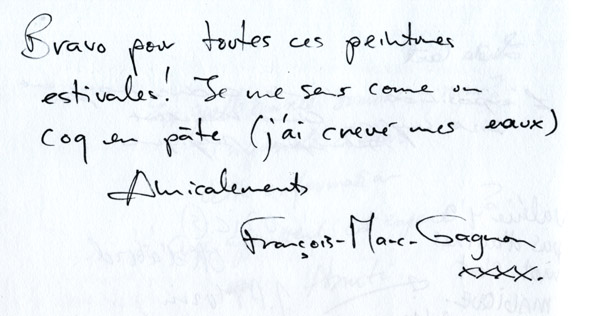 Bravo pour toutes ces peintures
estivales! Je me sens come un
coq en pâte (j'ai crevé mes eaux)
Amicalements
François-Marc Gagnon
xxxx.